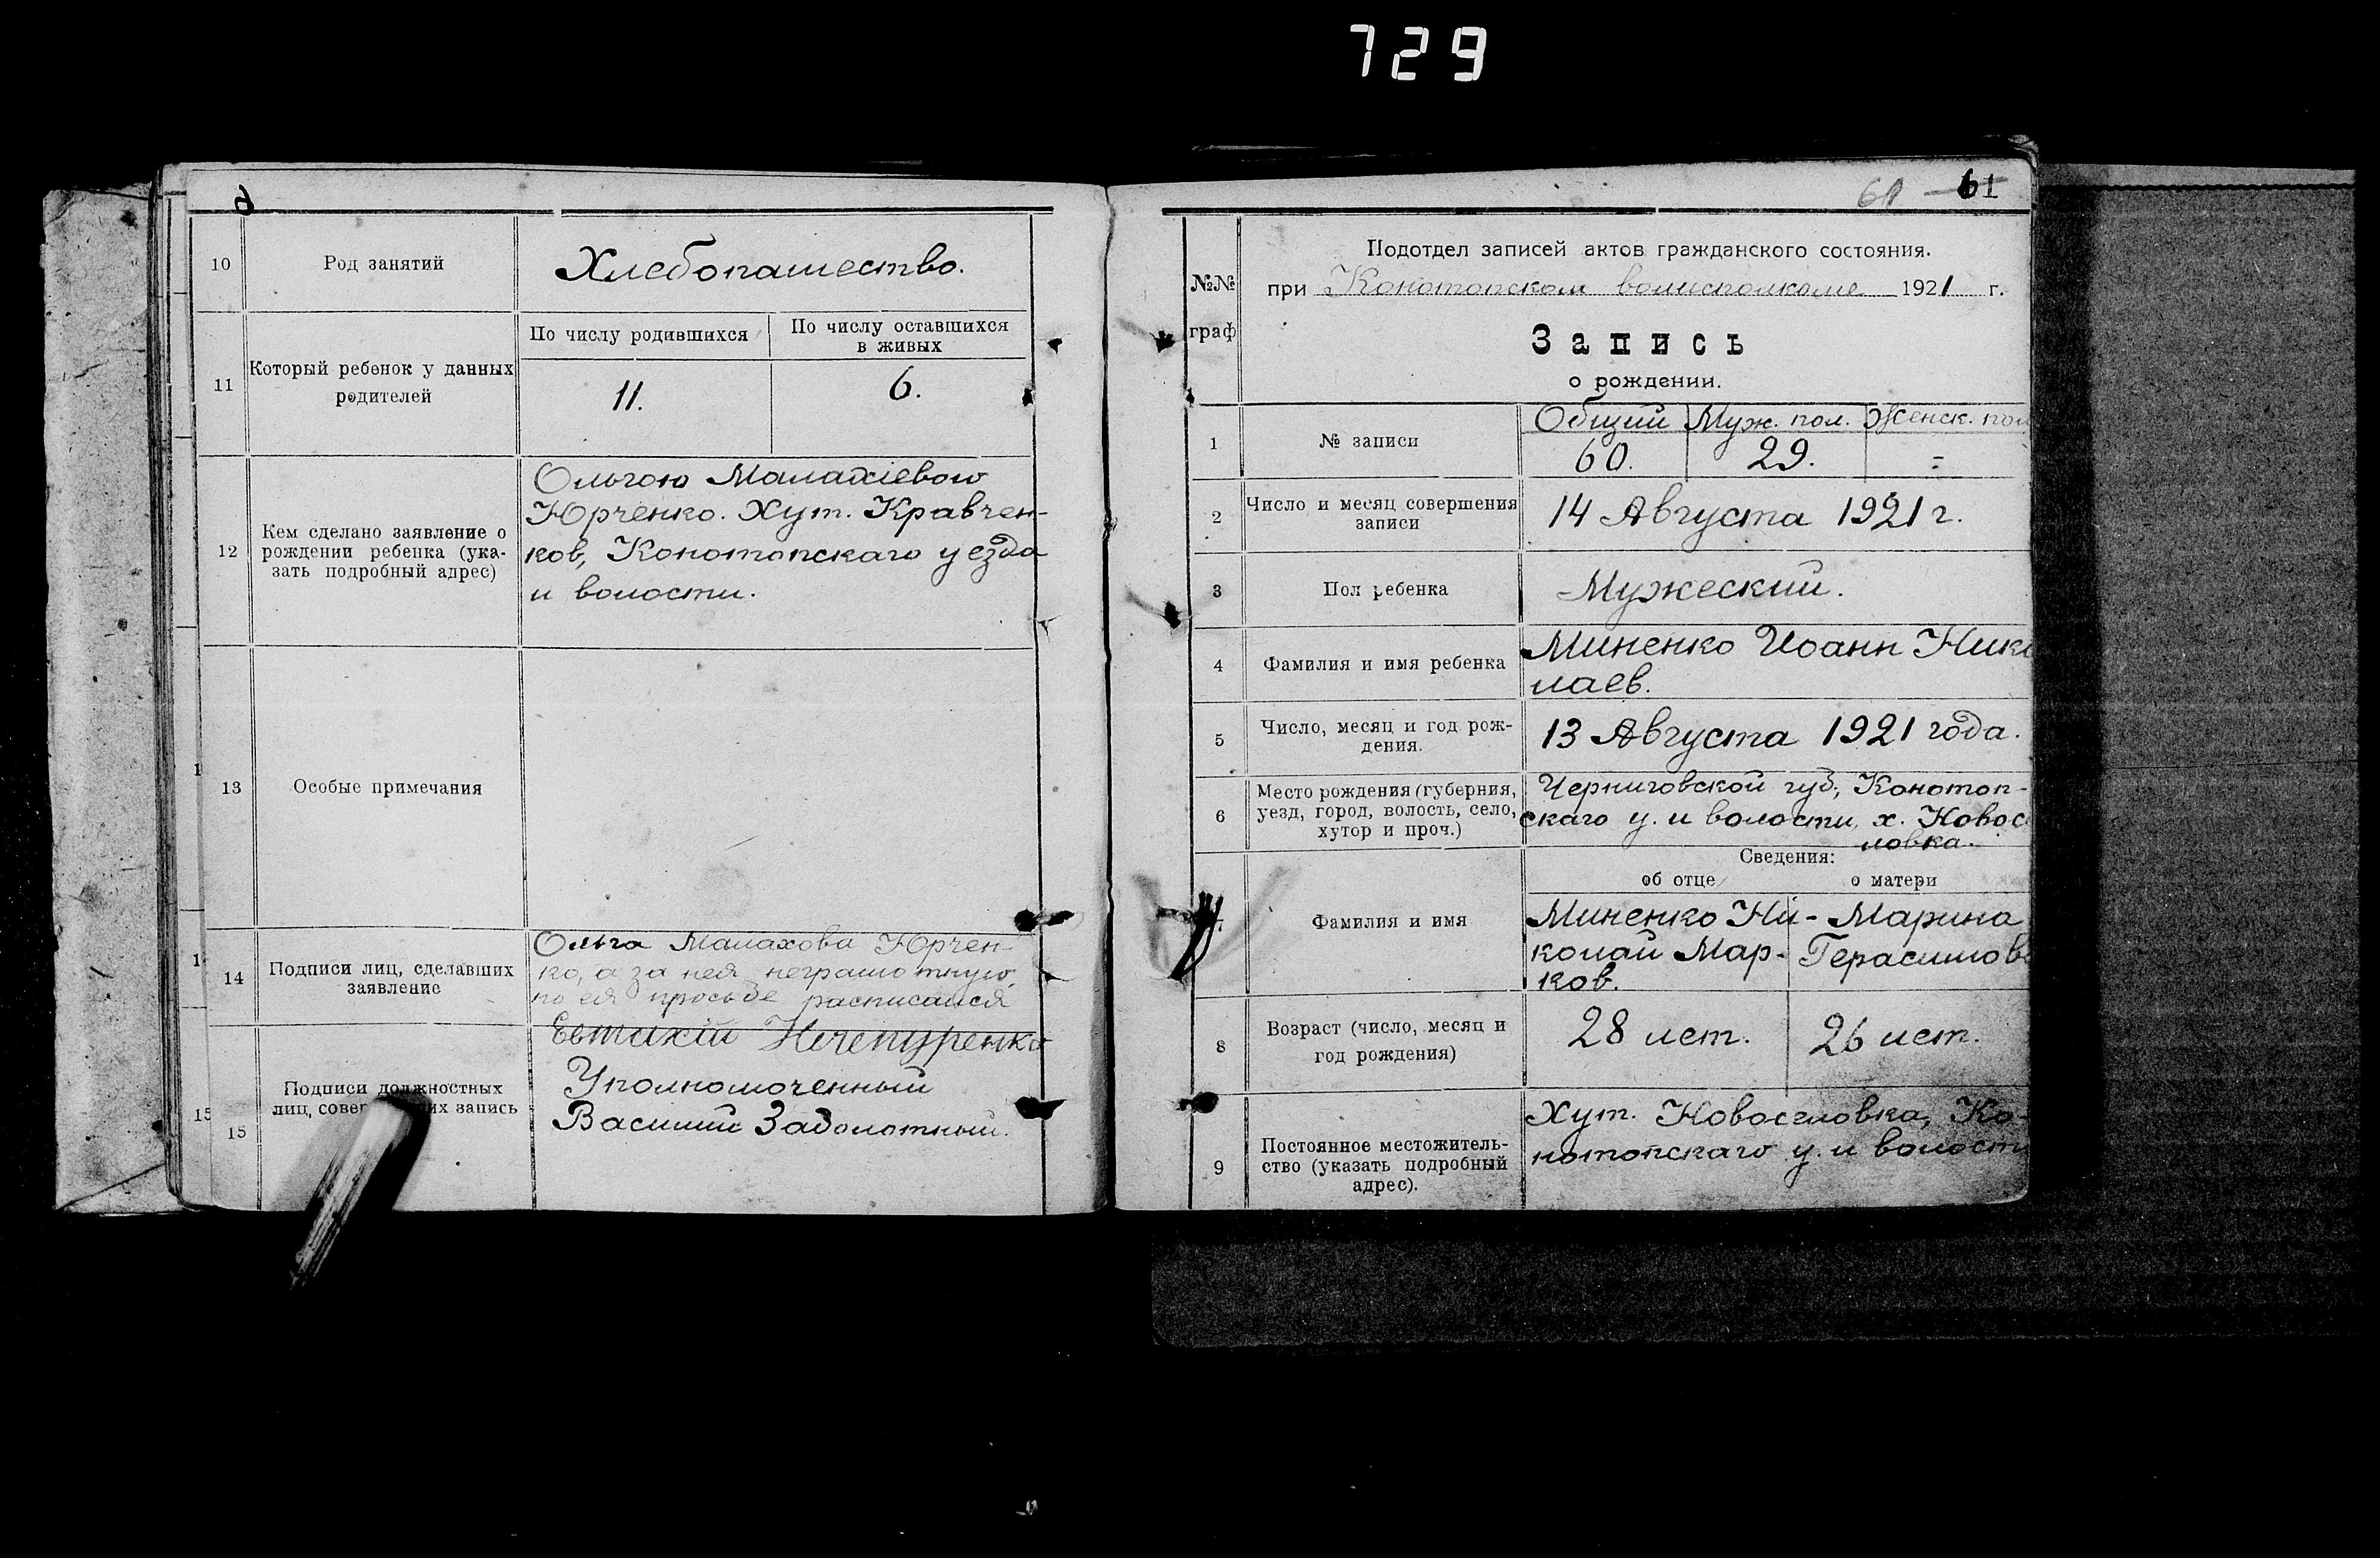 729
10
Род занятий
Хлебопашество.
11
Который ребенок у данных
родителей
По числу родившихся
По числу оставшихся
в живых
11.
6.
12
Кем сделано заявление о
рождении ребенка (ука-
зать подробный адрес)
Ольгою Малахіевою
Юрченко. Хут. Кравчен-
ков, Конотопскаго уезда
и волости.
13
Особые примечания
14
Подписи лиц, сделавших
заявление
Ольга Малахова Юрчен-
ко, а за нея неграмотную,
по ея просьбе расписался
Евтихій Нечепуренко
15
Подписи должностных
лиц, запись
Уполномоченный
Василий Заболотный.
61
Подотдел записей актов гражданского состояния.
№№
граф
при Конотопском волисполкоме 1921 г.
Запись
о рождении.
1
№ записи
Общий Муж. пол. Женск. пол
60. 29. =
2
Число и месяц совершения
записи
14 Августа 1921 г.
3
Пол ребенка
Мужеский.
4
Фамилия и имя ребенка
Миненко Иоанн Нико
лаев.
5
Число, месяц и год рож-
дения.
13 Августа 1921 года.
6
Место рождения (губерния,
уезд, город, волость, село,
хутор и проч.)
Черниговской губ., Конотоп-
скаго у. и волости, х. Новос
ловка.
Сведения:
об отце
о матери
7
Фамилия и имя
Миненко Ни-
колай Мар-
ков.
Марина
Герасимов
8
Возраст (число, месяц и
год рождения)
28 лет.
26 лет.
9
Постоянное местожитель-
ство (указать подробный
адрес).
Хут. Новоселовка, Ко-
нотопскаго у. и волости